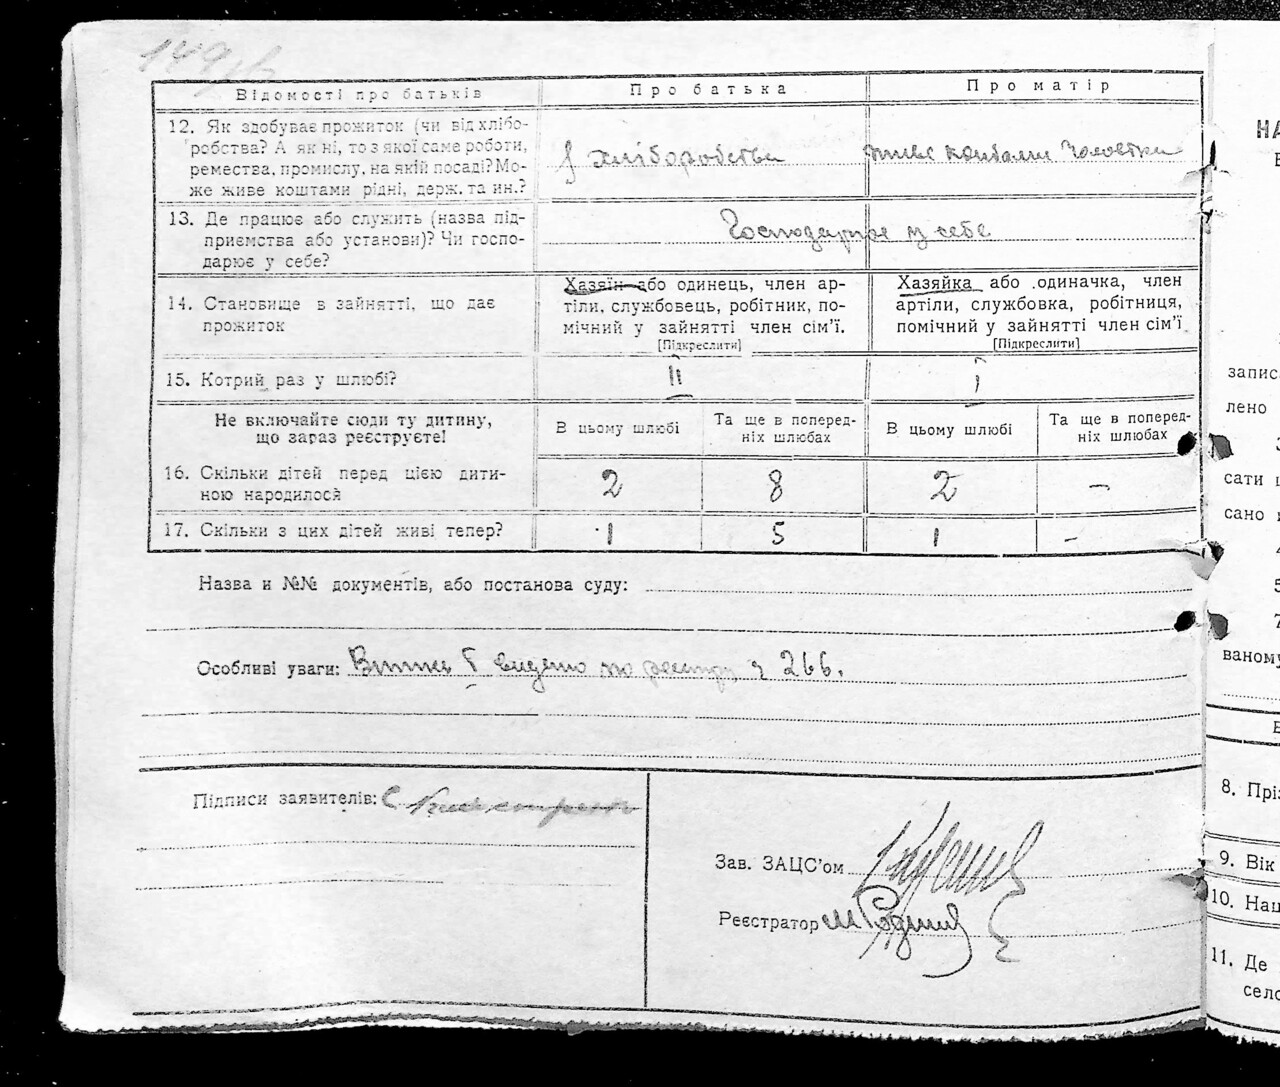 149
Відомості про батьків
Про батька
Про матір
12. Як здобуває прожиток (чи від хлібо-
робства? А як ні, то з якої саме роботи,
ремества, промислу, на якій посаді? Мо-
же живе коштами рідні, держ. та ин.?
з хліборобства
живе коштами чоловіка
13. Де працює або служить (назва під-
приємства або установи)? Чи госпо-
дарює у себе?
Господарює у себе
14. Становище в зайнятті, що дає
прожиток
Хазяїн або одинець, член ар-
тіли, службовець, робітник, по-
мічний у зайнятті член сім'ї.
[Підкреслити]
Хазяйка або одиначка, член
артіли, службовка, робітниця,
помічний у зайнятті член сім'ї
[Підкреслити]
15. Котрий раз у шлюбі?
II
I
Не включайте сюди ту дитину,
що зараз реєструєте!
В цьому шлюбі
Та ще в поперед-
ніх шлюбах
В цьому шлюбі
Та ще в поперед-
ніх шлюбах
16. Скільки дітей перед цією дити-
ною народилося
2
8
2
–
17. Скільки з цих дітей живі тепер?
1
5
1
–
Назва и №№ документів, або постанова суду:
Особливі уваги: видано по реєстру 266.
Підписи заявителів:
Зав. ЗАЦС'ом
Реєстратор
НА
запис
лено
сати
сано
4
5
7
ваному
8. Прі
9. Вік
10. Нац
11. Де
село